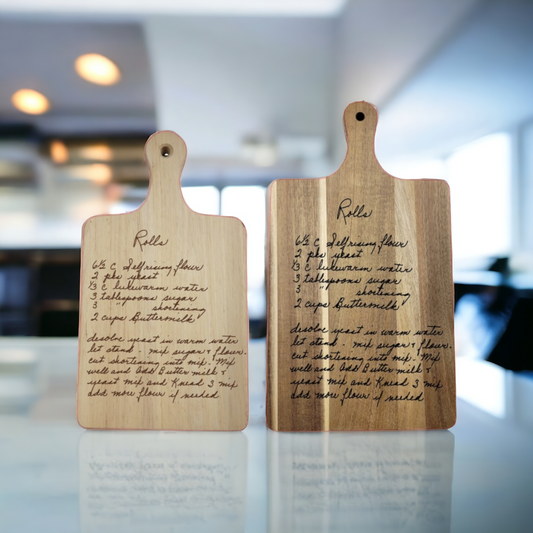 Rolls
6½ C Selfrising flour
2 pks yeast
⅓ C lukewarm water
3 tablespoons sugar
3 " shortening
2 cups Buttermilk
desolve yeast in warm water
let stand - mix sugar + flour.
cut shortening into mix. Mix
well and add Butter milk +
yeast mix and Knead 3 mix
add more flour if needed
Rolls
6½ C Selfrising flour
2 pks yeast
⅓ C lukewarm water
3 tablespoons sugar
3 " shortening
2 cups Buttermilk
desolve yeast in warm water
let stand - mix sugar + flour.
cut shortening into mix. Mix
well and add Butter milk +
yeast mix and Knead 3 mix
add more flour if needed